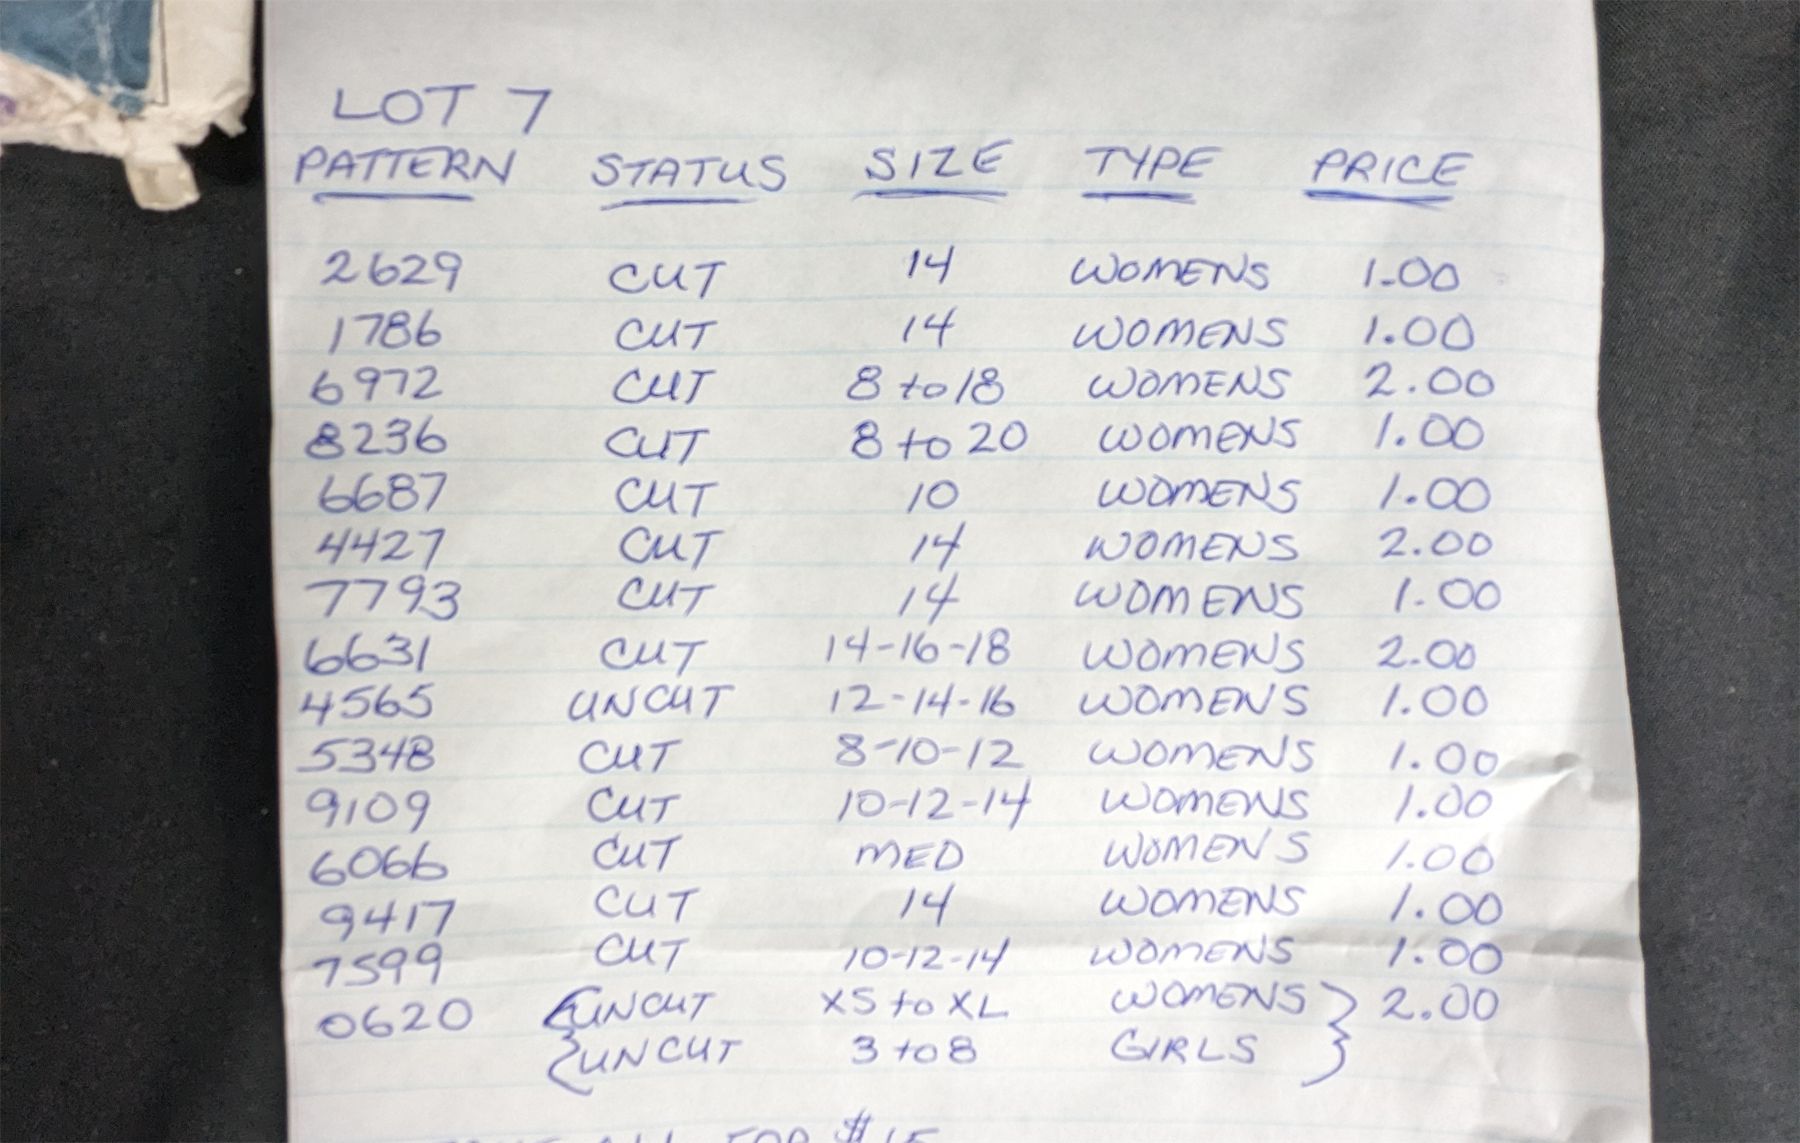 LOT 7
PATTERN STATUS SIZE TYPE PRICE
2629 CUT 14 WOMENS 1.00
1786 CUT 14 WOMENS 1.00
6972 CUT 8 to 18 WOMENS 2.00
8236 CUT 8 to 20 WOMENS 1.00
6687 CUT 10 WOMENS 1.00
4427 CUT 14 WOMENS 2.00
7793 CUT 14 WOMENS 1.00
6631 CUT 14-16-18 WOMENS 2.00
4565 UNCUT 12-14-16 WOMENS 1.00
5348 CUT 8-10-12 WOMENS 1.00
9109 CUT 10-12-14 WOMENS 1.00
6066 CUT MED WOMENS 1.00
9417 CUT 14 WOMENS 1.00
7599 CUT 10-12-14 WOMENS 1.00
0620 {UNCUT XS to XL WOMENS } 2.00
{UNCUT 3 to 8 GIRLS }
ALL FOR $15